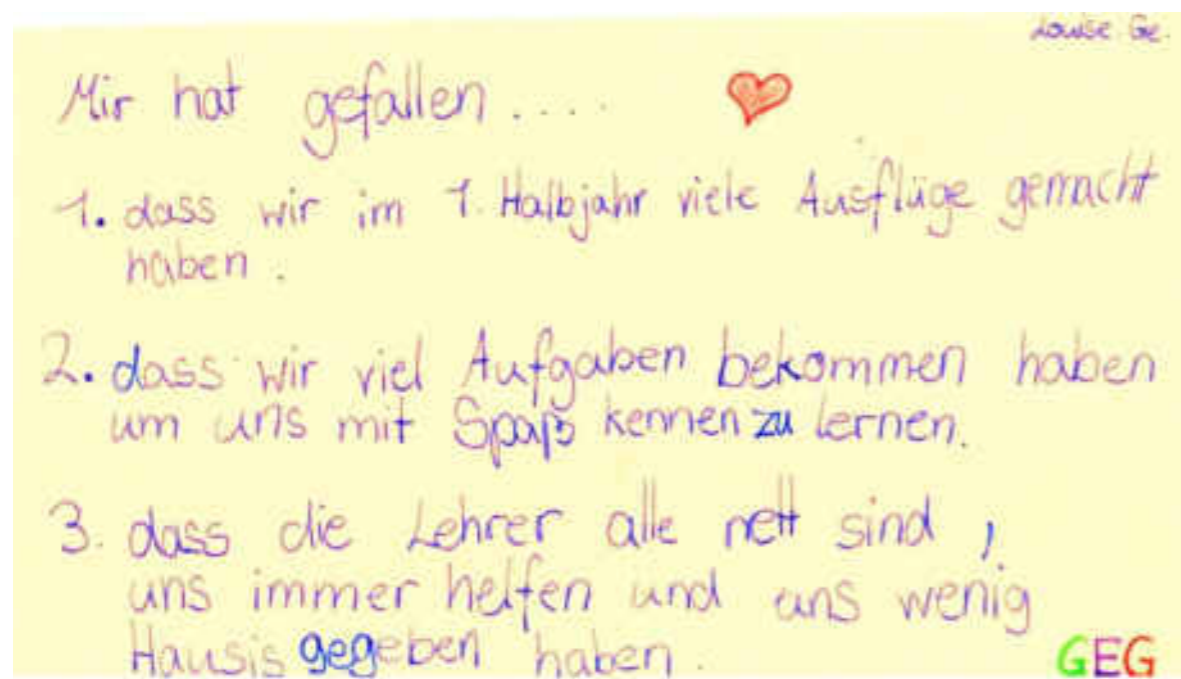 Louise Ge.
Mir hat gefallen .... 
1. dass wir im 1. Halbjahr viele Ausflüge gemacht
haben.
2. dass wir viel Aufgaben bekommen haben
um uns mit Spaß kennen zu lernen.
3. dass die Lehrer alle nett sind,
uns immer helfen und uns wenig
Hausis gegeben haben.
GEG